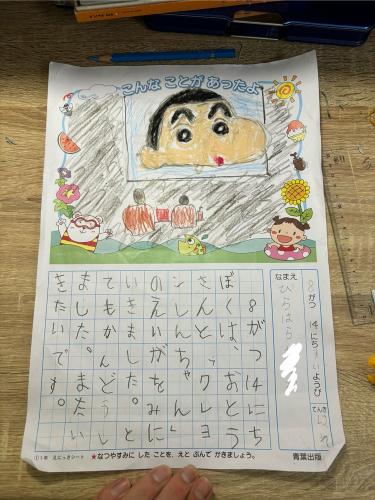 こんな ことが あったよ
8がつ 14にち すいようび
てんき はれ
なまえ
ひらはら
8がつ14にち
ぼくは、おとう
さんと、クレヨ
ンしんちゃん
のえいがをみに
いきました。と
てもかんどうし
ました。またい
きたいです。
①1年 えにっきシート
★なつやすみに した ことを、えと ぶんで かきましょう。
青葉出版